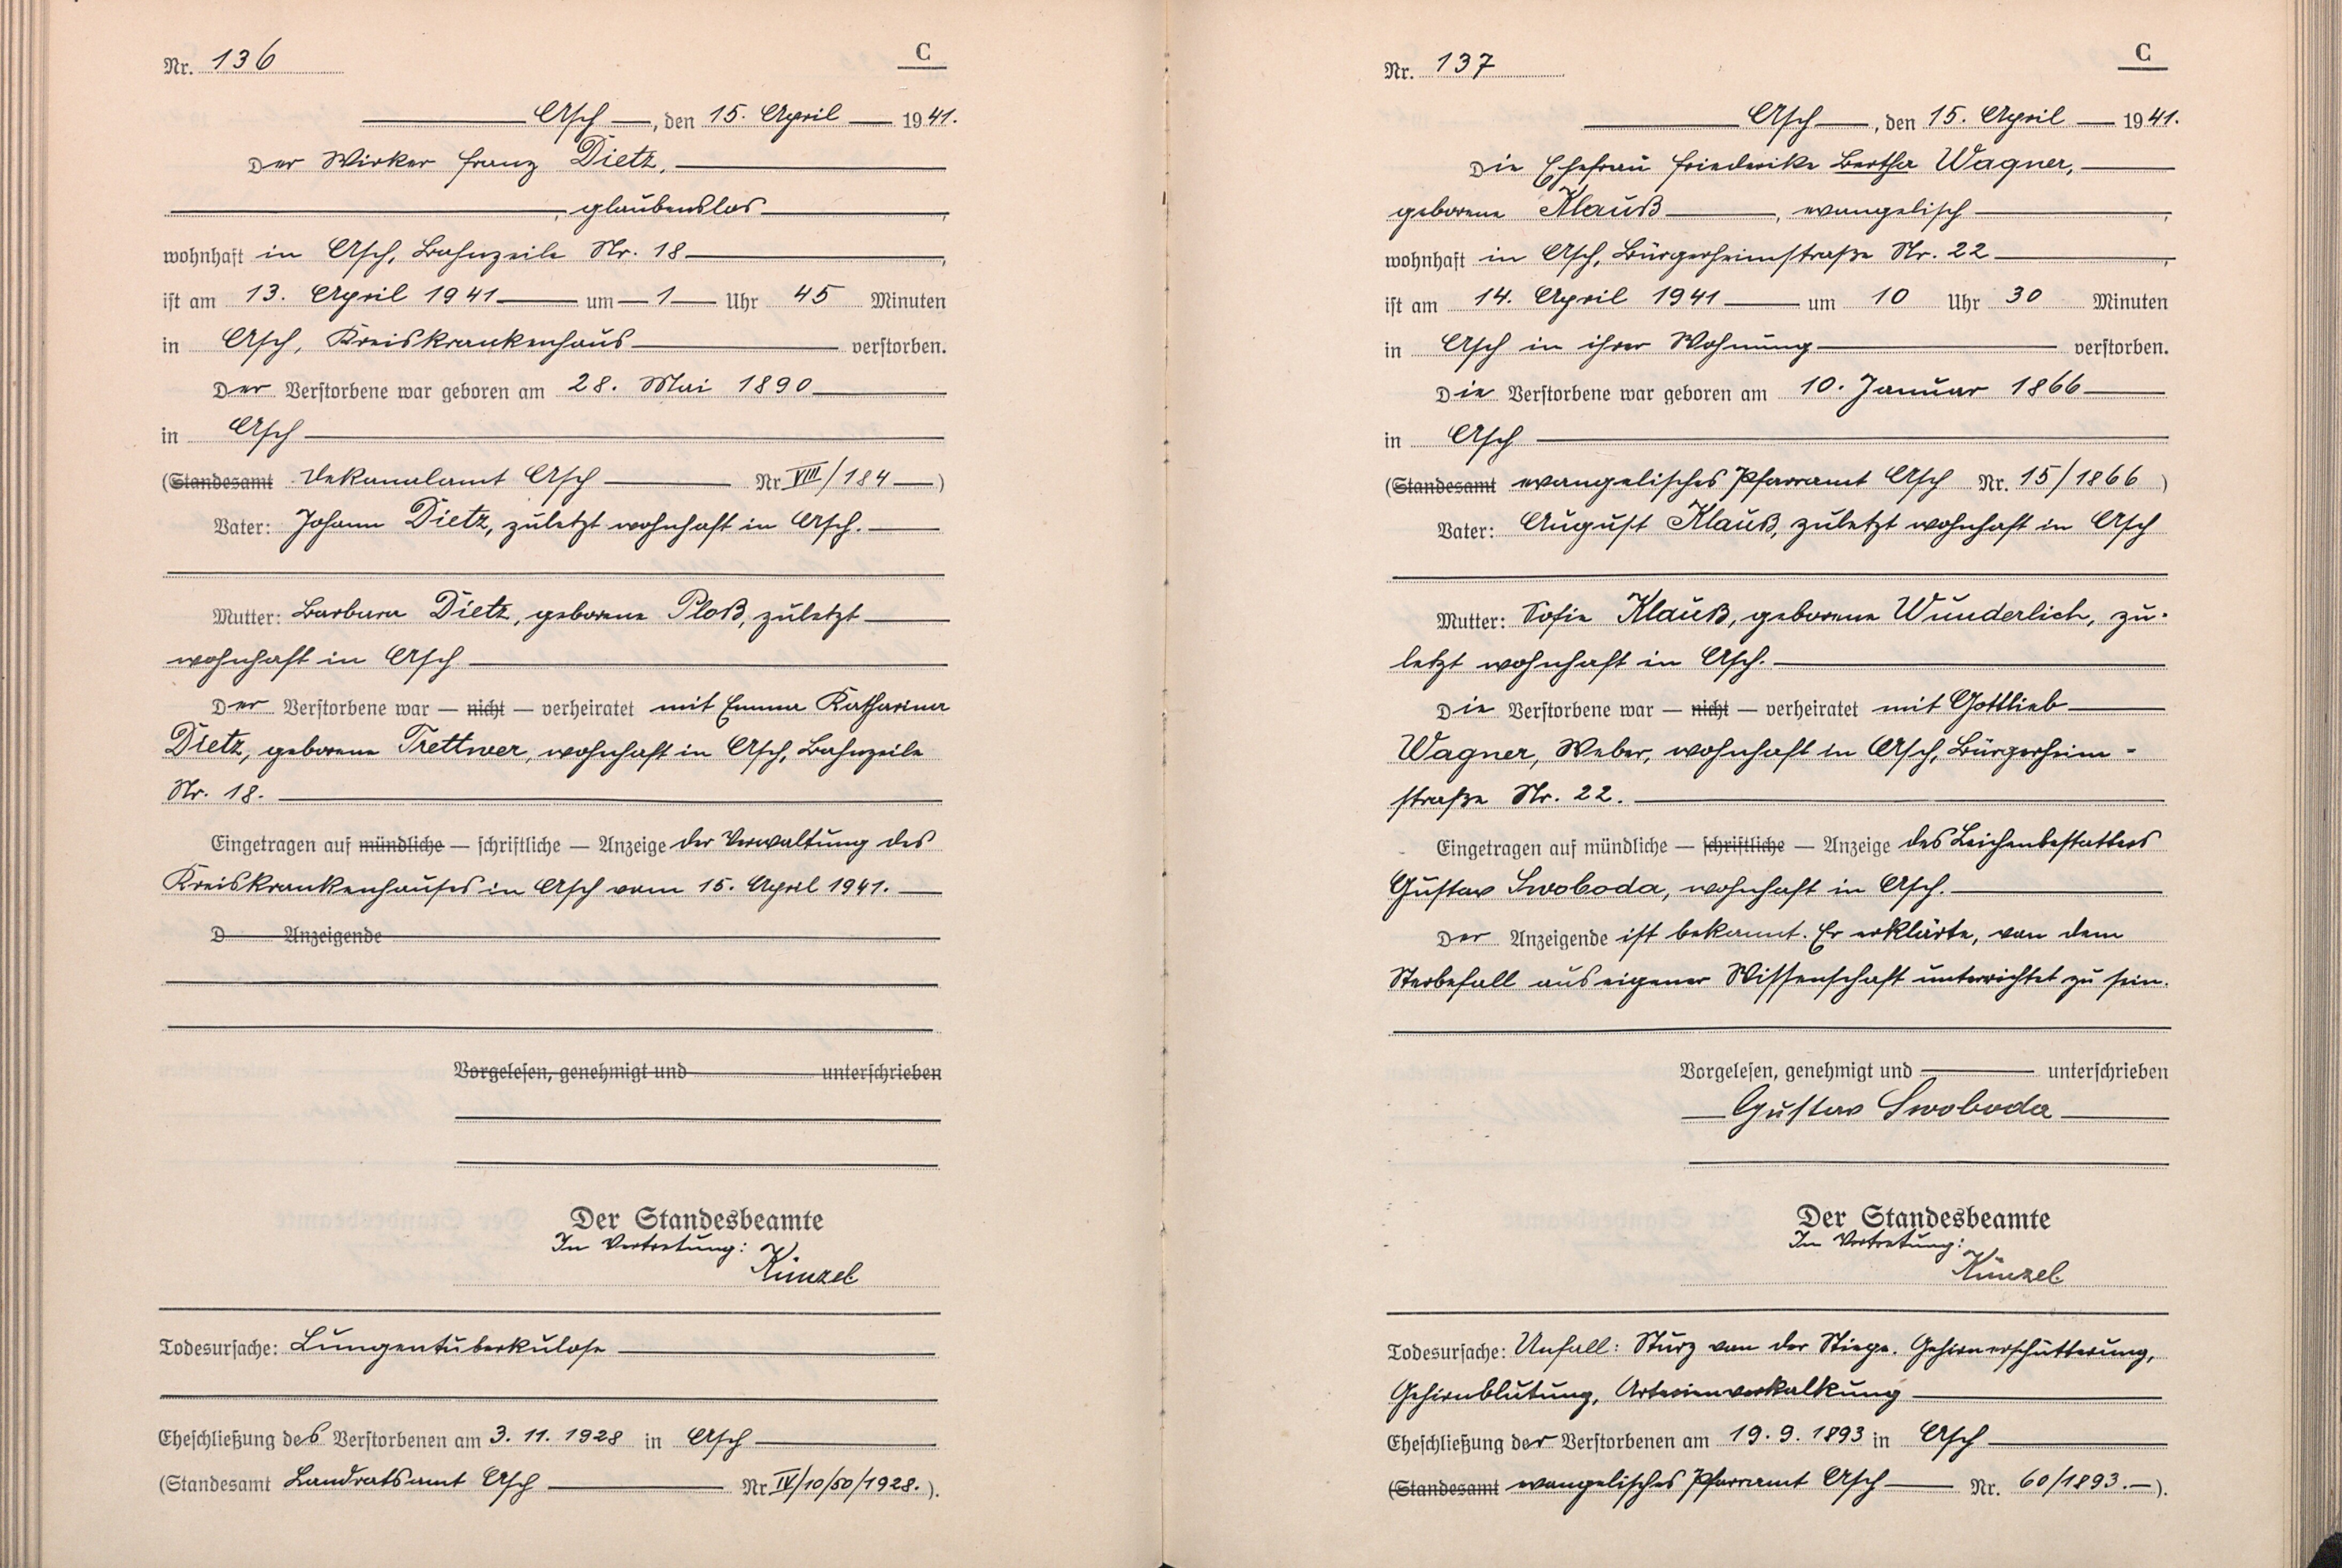 Nr. 136
C
Asch, den 15. April 1941.
Der Wirker Franz Dietz,
, glaubenslos,
wohnhaft in Asch, Bahnzeile Nr. 18,
ist am 13. April 1941 um 1 Uhr 45 Minuten
in Asch, Kreiskrankenhaus verstorben.
Der Verstorbene war geboren am 28. Mai 1890
in Asch
(Standesamt Dekanalamt Asch Nr. VIII/184)
Vater: Johann Dietz, zuletzt wohnhaft in Asch.
Mutter: Barbara Dietz, geborene Ploß, zuletzt
wohnhaft in Asch
Der Verstorbene war — nicht — verheiratet mit Emma Katharina
Dietz, geborene Trettwer, wohnhaft in Asch, Bahnzeile
Nr. 18.
Eingetragen auf mündliche — schriftliche — Anzeige der Verwaltung des
Kreiskrankenhauses in Asch vom 15. April 1941.
D Anzeigende
Vorgelesen, genehmigt und unterschrieben
Der Standesbeamte
In Vertretung:
Künzel
Todesursache: Lungentuberkulose
Eheschließung des Verstorbenen am 3. 11. 1928 in Asch
(Standesamt Landratsamt Asch Nr. IV/10/50/1928.).
Nr. 137
C
Asch, den 15. April 1941.
Die Ehefrau Friederike Bertha Wagner,
geborene Klauß, evangelisch,
wohnhaft in Asch, Bürgerheimstraße Nr. 22,
ist am 14. April 1941 um 10 Uhr 30 Minuten
in Asch in ihrer Wohnung verstorben.
Die Verstorbene war geboren am 10. Januar 1866
in Asch
(Standesamt evangelisches Pfarramt Asch Nr. 15/1866)
Vater: August Klauß, zuletzt wohnhaft in Asch
Mutter: Sofie Klauß, geborene Wunderlich, zu-
letzt wohnhaft in Asch.
Die Verstorbene war — nicht — verheiratet mit Gottlieb
Wagner, Weber, wohnhaft in Asch, Bürgerheim-
straße Nr. 22.
Eingetragen auf mündliche — schriftliche — Anzeige des Leichenbestatters
Gustav Swoboda, wohnhaft in Asch.
Der Anzeigende ist bekannt. Er erklärte, von dem
Sterbefall aus eigener Wissenschaft unterrichtet zu sein.
Vorgelesen, genehmigt und unterschrieben
Gustav Swoboda
Der Standesbeamte
In Vertretung:
Künzel
Todesursache: Unfall: Sturz von der Stiege. Gehirnerschütterung,
Gehirnblutung, Arterienverkalkung
Eheschließung der Verstorbenen am 19. 9. 1893 in Asch
(Standesamt evangelisches Pfarramt Asch Nr. 60/1893.).